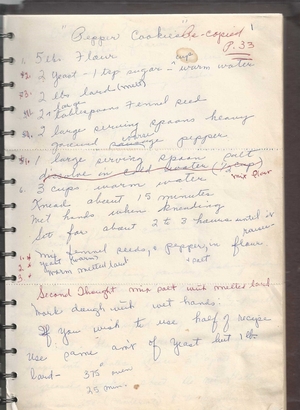 "Pepper Cookies" Re-copied 1
P. 33
1. 5 lb. Flour
#2. 2 Yeast - 1 tsp sugar - warm water
#3. 2 lbs lard (melt)
large
#4. 2 tablespoons Fennel seed
2 large serving spoons heavy
ground pepper
1 large serving spoon salt
dissolve in cold water
mix flour
6. 3 cups warm water
Knead about 15 minutes
Wet hands when kneading
Set for about 2 to 3 hours until it
raises
1. mix fennel seeds, & pepper, in flour
2. yeast & salt
3. warm melted lard
Second Thought mix salt with melted lard
Work dough with wet hands.
If you wish to use half of recipe
use same am't of yeast but 1 lb.
lard -
375° oven
25 min.